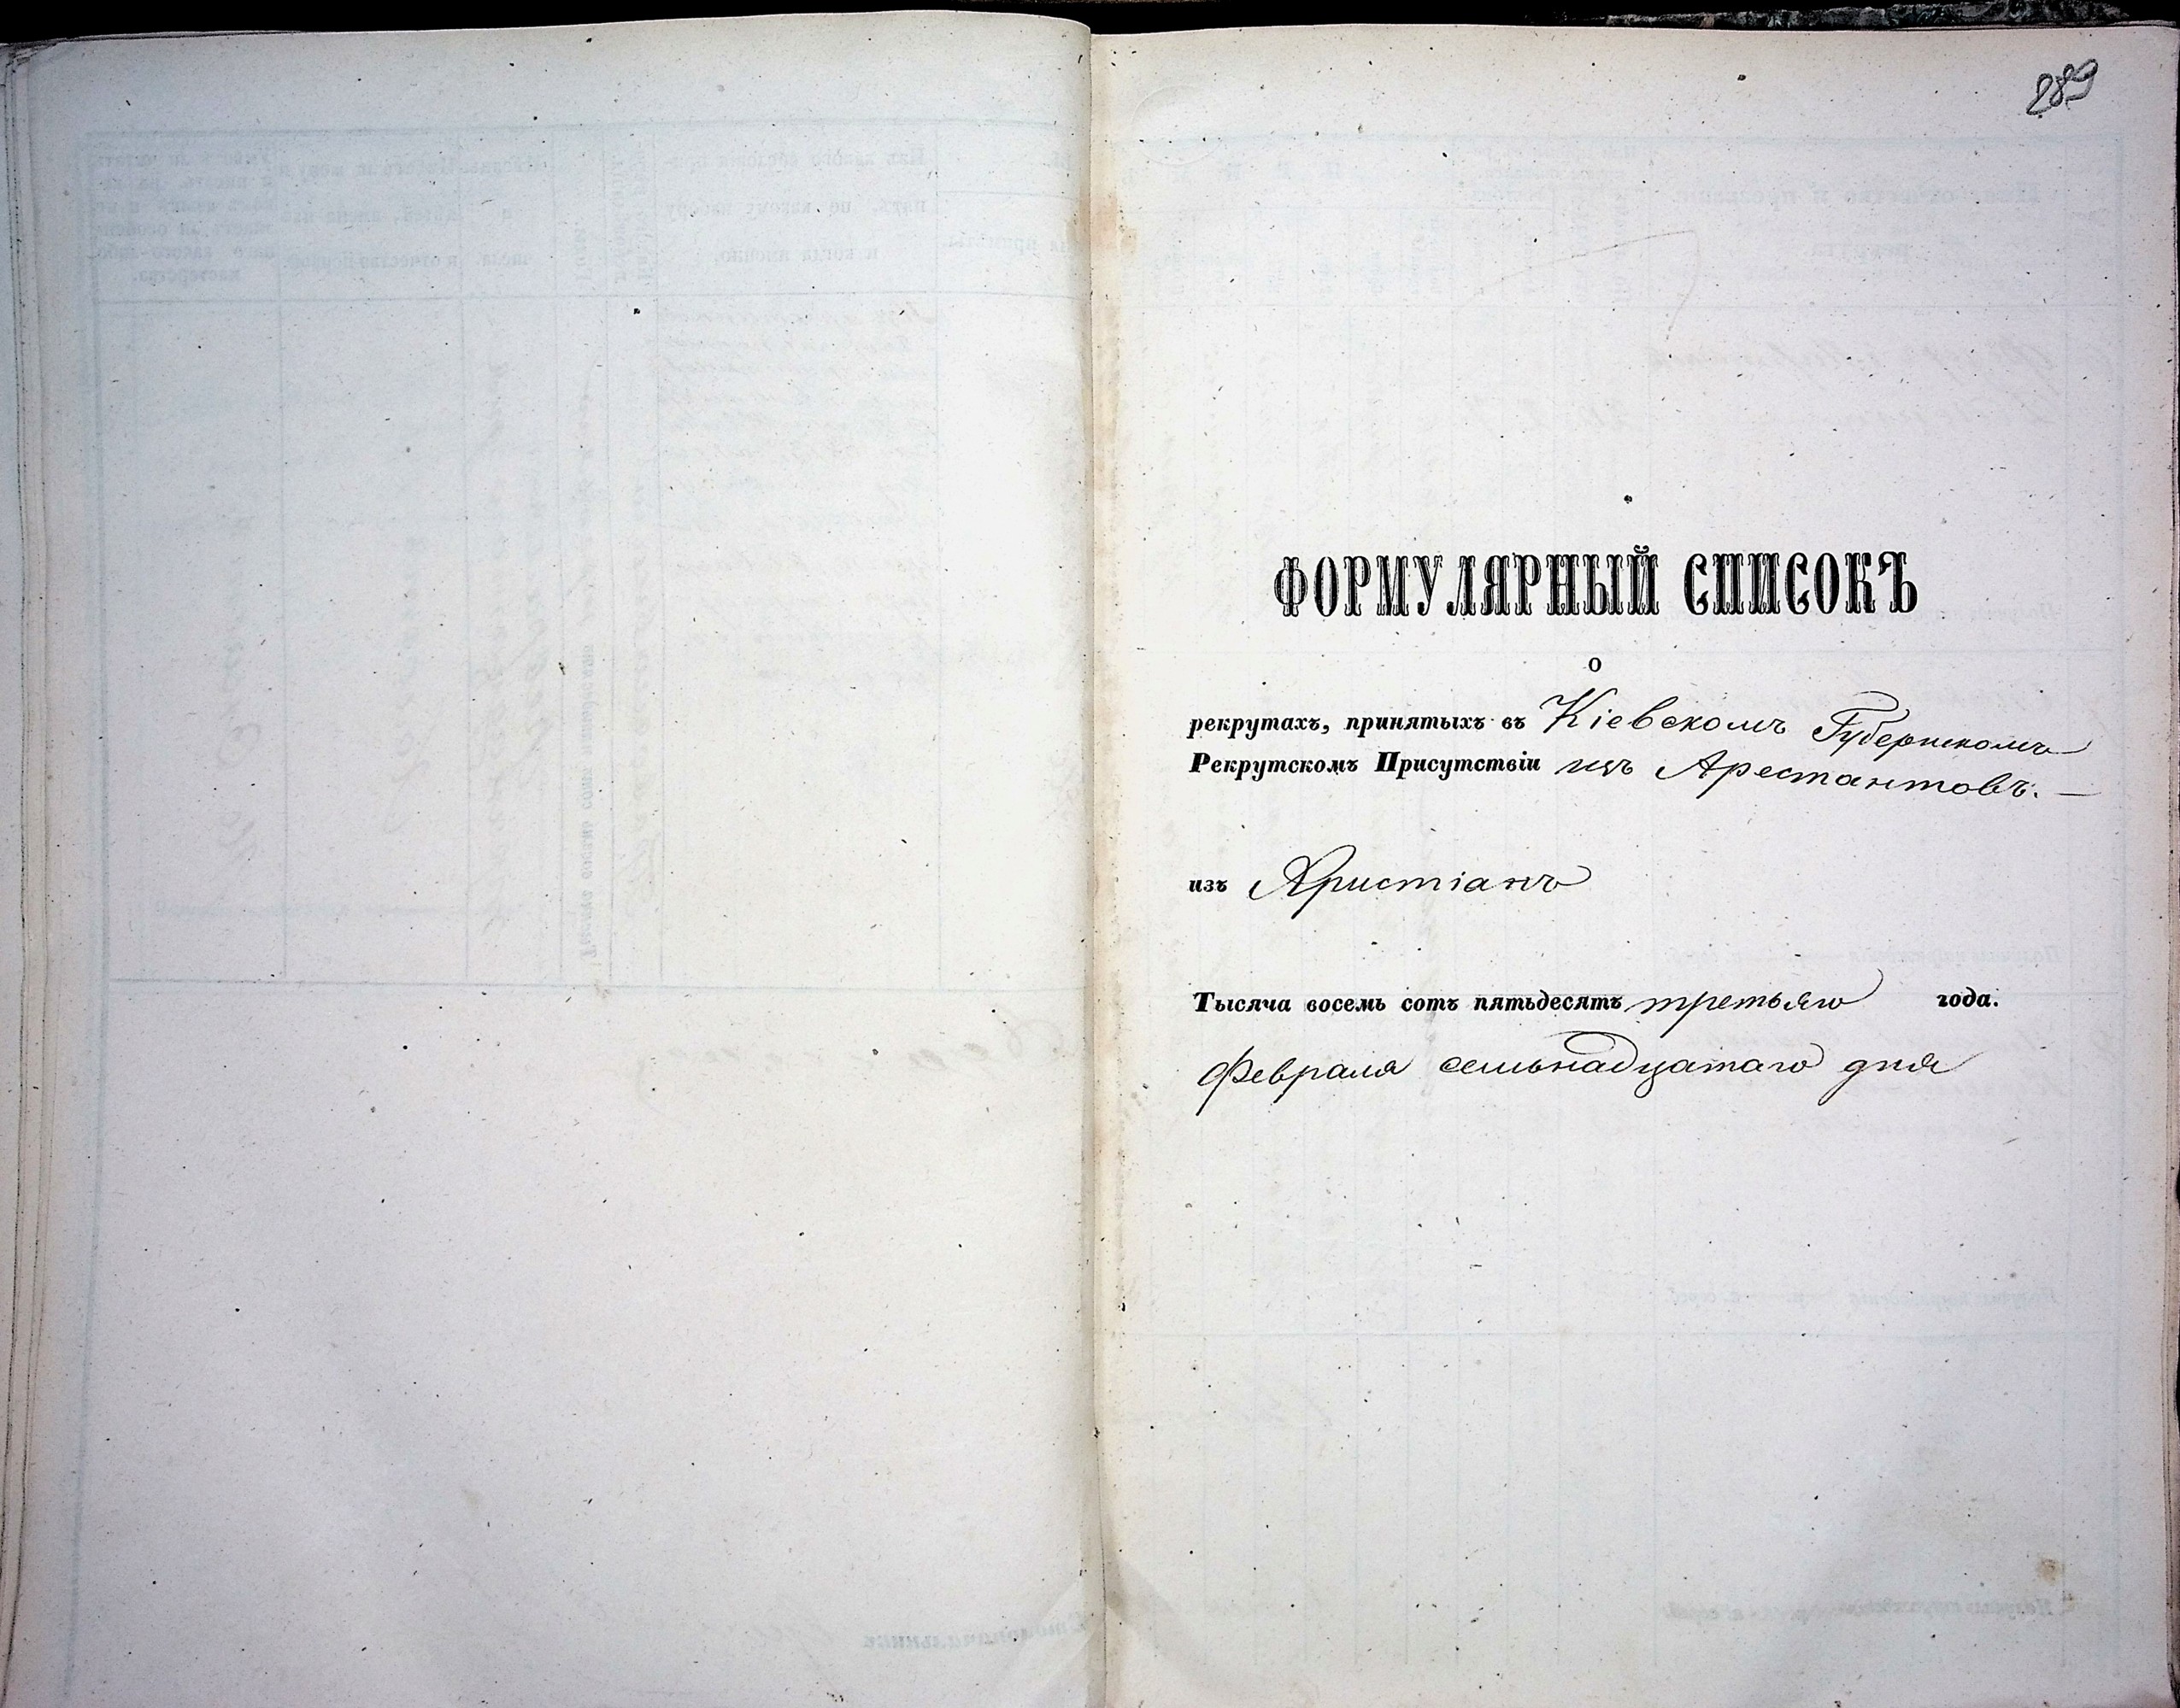 289
ФОРМУЛЯРНЫЙ СПИСОКЪ
о
рекрутахъ, принятыхъ въ Кіевскомъ Губернскомъ
Рекрутскомъ Присутствіи изъ Арестантовъ.
изъ Христіанъ
Тысяча восемь сотъ пятьдесятъ третьяго года.
Февраля семьнадцатаго дня